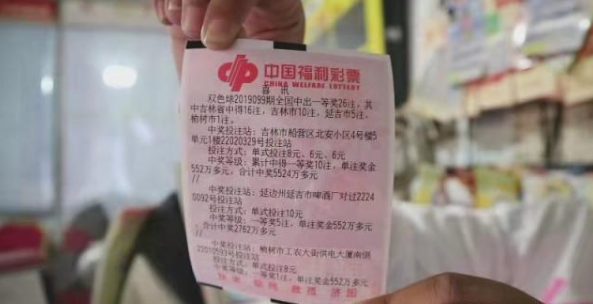 中国福利彩票
CHINA WELFARE LOTTERY
喜 讯
双色球2019099期全国中出一等奖26注，其
中吉林省中得16注，吉林市10注，延吉市5注，
榆树市1注。
中奖投注站：吉林市船营区北安小区4号楼5
单元1楼22020329号投注站
投注方式：单式投注8元、6元、6元
中奖等级：累计中得一等奖10注，单注奖金
552万多元，合计中奖5524万多元
//
中奖投注站：延边州延吉市啤酒厂对过2224
0092号投注站
投注方式：单式投注10元
中奖等级：一等奖5注，单注奖金552万多元
，合计中奖2762万多元
//
中奖投注站：榆树市工农大街供电大厦南侧
22010593号投注站
投注方式：单式投注8元
中奖等级：一等奖1注，单注奖金552万多元
扶老 助残 救孤 济困